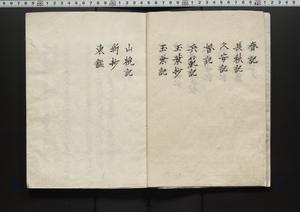 春記
長秋記
久安記
台記
兵範記
玉葉抄
玉葉記
山槐記
新抄
東鑑